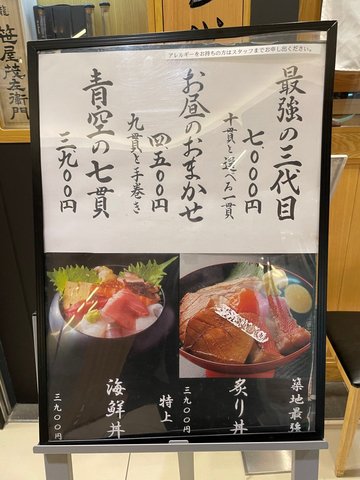 笹屋茂左衛門
アレルギーをお持ちの方はスタッフまでお申し出ください。
最強の三代目
七〇〇〇円
十貫と選べる一貫
お昼のおまかせ
四五〇〇円
九貫と手巻き
青空の七貫
三九〇〇円
築地最強
炙り丼
三九〇〇円
特上
海鮮丼
三九〇〇円